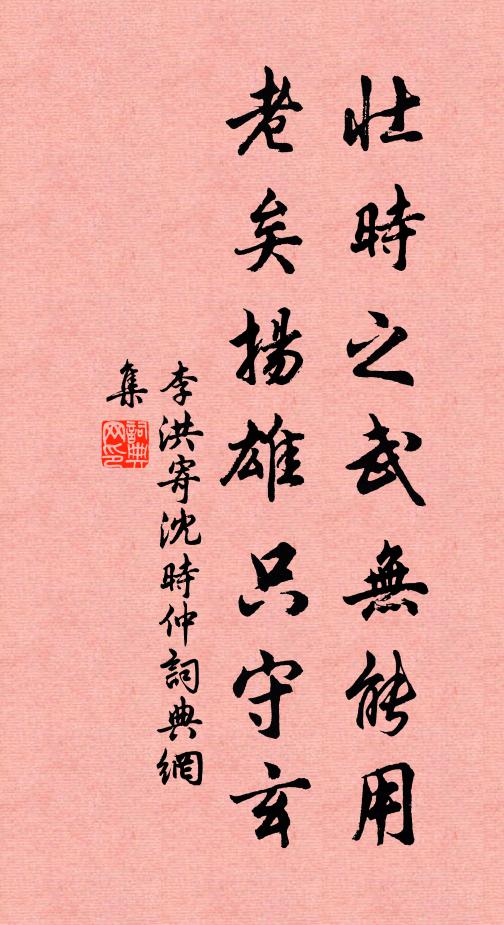 壯時之武無能用
老矣揚雄只守玄
李洪寄沈時仲詞典網
集
詞典
网印